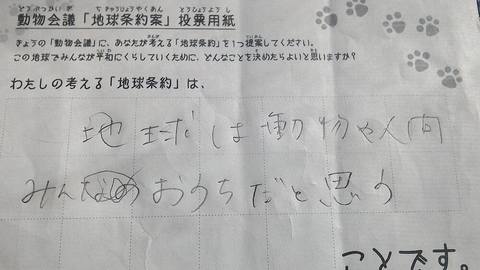 どうぶつかいぎ ちきゅうじょうやくあん とうひょうようし
動物会議「地球条約案」投票用紙
きょうの「動物会議」に、あなたが考える「地球条約」を1つ提案してください。
この地球でみんなが平和にくらしていくために、どんなことを決めたらよいと思いますか?
わたしの考える「地球条約」は、
地球は動物や人間
みんなのおうちだと思う
ことです。